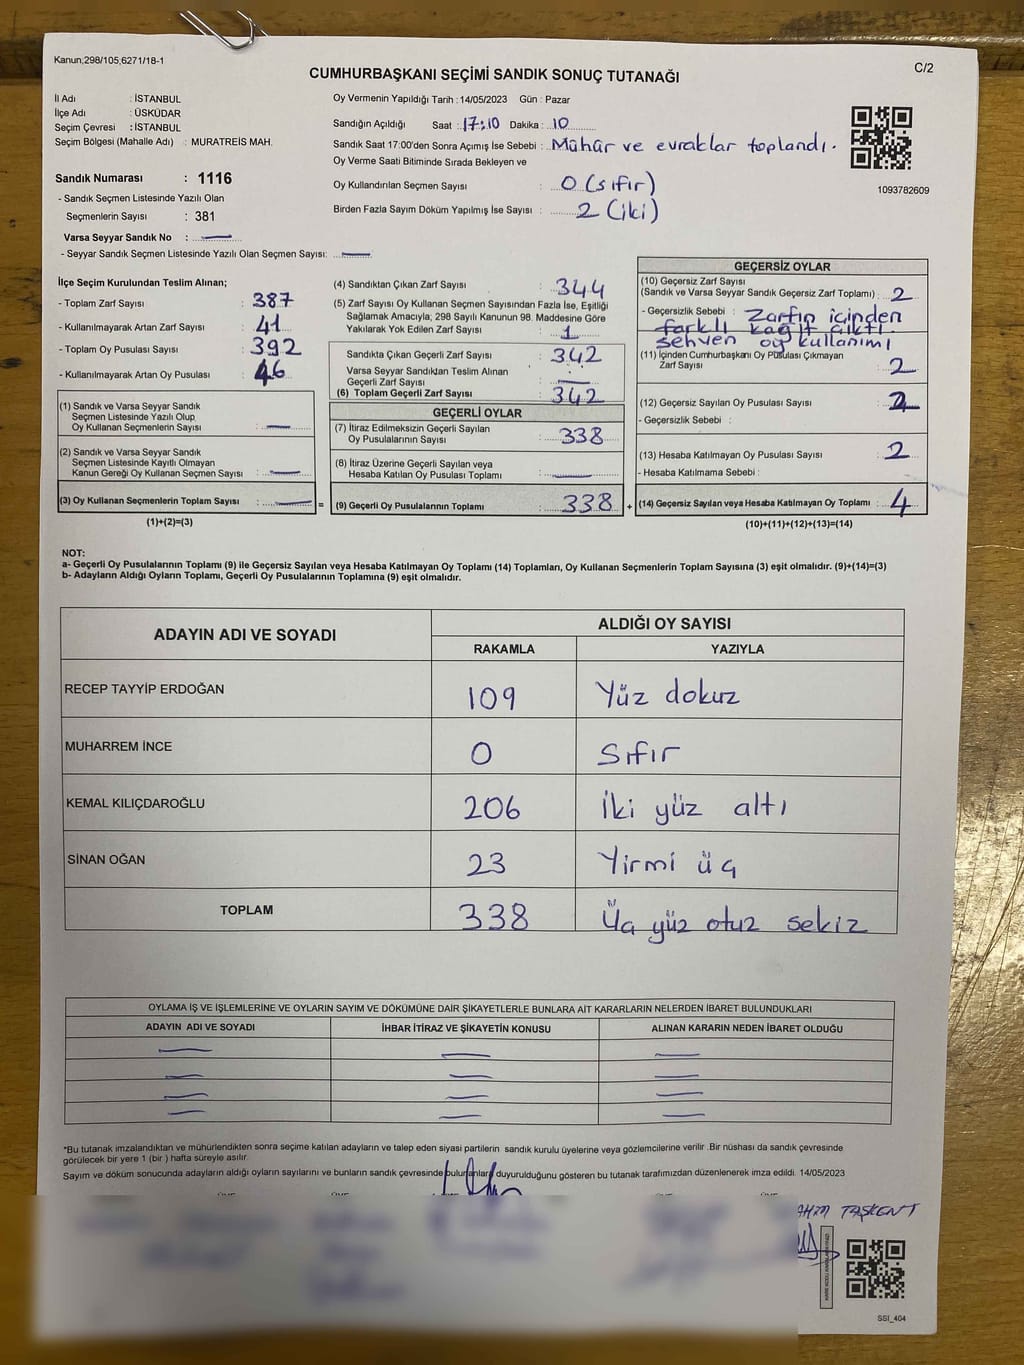 Kanun,298/105,6271/18-1
C/2
CUMHURBAŞKANI SEÇİMİ SANDIK SONUÇ TUTANAĞI
İl Adı : İSTANBUL
İlçe Adı : ÜSKÜDAR
Seçim Çevresi : İSTANBUL
Seçim Bölgesi (Mahalle Adı) : MURATREİS MAH.
Oy Vermenin Yapıldığı Tarih : 14/05/2023 Gün : Pazar
Sandığın Açıldığı Saat : 17:10 Dakika : 10
Sandık Saat 17:00'den Sonra Açımış İse Sebebi : Mühür ve evraklar toplandı.
Oy Verme Saati Bitiminde Sırada Bekleyen ve
Oy Kullandırılan Seçmen Sayısı : 0 (sıfır)
Birden Fazla Sayım Döküm Yapılmış İse Sayısı : 2 (iki)
1093782609
Sandık Numarası : 1116
- Sandık Seçmen Listesinde Yazılı Olan
Seçmenlerin Sayısı : 381
Varsa Seyyar Sandık No : —
- Seyyar Sandık Seçmen Listesinde Yazılı Olan Seçmen Sayısı: —
İlçe Seçim Kurulundan Teslim Alınan;
- Toplam Zarf Sayısı : 387
- Kullanılmayarak Artan Zarf Sayısı : 41
- Toplam Oy Pusulası Sayısı : 392
- Kullanılmayarak Artan Oy Pusulası : 46
(1) Sandık ve Varsa Seyyar Sandık
Seçmen Listesinde Yazılı Olup
Oy Kullanan Seçmenlerin Sayısı : —
(2) Sandık ve Varsa Seyyar Sandık
Seçmen Listesinde Kayıtlı Olmayan
Kanun Gereği Oy Kullanan Seçmen Sayısı : —
(3) Oy Kullanan Seçmenlerin Toplam Sayısı : — =
(1)+(2)=(3)
(4) Sandıktan Çıkan Zarf Sayısı : 344
(5) Zarf Sayısı Oy Kullanan Seçmen Sayısından Fazla İse, Eşitliği
Sağlamak Amacıyla; 298 Sayılı Kanunun 98. Maddesine Göre
Yakılarak Yok Edilen Zarf Sayısı : 1
Sandıkta Çıkan Geçerli Zarf Sayısı : 342
Varsa Seyyar Sandıktan Teslim Alınan
Geçerli Zarf Sayısı : —
(6) Toplam Geçerli Zarf Sayısı : 342
GEÇERLİ OYLAR
(7) İtiraz Edilmeksizin Geçerli Sayılan
Oy Pusulalarının Sayısı : 338
(8) İtiraz Üzerine Geçerli Sayılan veya
Hesaba Katılan Oy Pusulası Toplamı : —
(9) Geçerli Oy Pusulalarının Toplamı : 338 +
GEÇERSİZ OYLAR
(10) Geçersiz Zarf Sayısı
(Sandık ve Varsa Seyyar Sandık Geçersiz Zarf Toplamı) : 2
- Geçersizlik Sebebi : Zarfın içinden
farklı kağıt çıktı
sehven oy kullanımı
(11) İçinden Cumhurbaşkanı Oy Pusulası Çıkmayan
Zarf Sayısı : 2
(12) Geçersiz Sayılan Oy Pusulası Sayısı :
- Geçersizlik Sebebi :
(13) Hesaba Katılmayan Oy Pusulası Sayısı : 2
- Hesaba Katılmama Sebebi :
(14) Geçersiz Sayılan veya Hesaba Katılmayan Oy Toplamı : 4
(10)+(11)+(12)+(13)=(14)
NOT:
a- Geçerli Oy Pusulalarının Toplamı (9) ile Geçersiz Sayılan veya Hesaba Katılmayan Oy Toplamı (14) Toplamları, Oy Kullanan Seçmenlerin Toplam Sayısına (3) eşit olmalıdır. (9)+(14)=(3)
b- Adayların Aldığı Oyların Toplamı, Geçerli Oy Pusulalarının Toplamına (9) eşit olmalıdır.
ADAYIN ADI VE SOYADI
ALDIĞI OY SAYISI
RAKAMLA YAZIYLA
RECEP TAYYİP ERDOĞAN 109 Yüz dokuz
MUHARREM İNCE 0 Sıfır
KEMAL KILIÇDAROĞLU 206 İki yüz altı
SİNAN OĞAN 23 Yirmi üç
TOPLAM 338 Üç yüz otuz sekiz
OYLAMA İŞ VE İŞLEMLERİNE VE OYLARIN SAYIM VE DÖKÜMÜNE DAİR ŞİKAYETLERLE BUNLARA AİT KARARLARIN NELERDEN İBARET BULUNDUKLARI
ADAYIN ADI VE SOYADI İHBAR İTİRAZ VE ŞİKAYETİN KONUSU ALINAN KARARIN NEDEN İBARET OLDUĞU
— — —
— — —
— — —
— — —
*Bu tutanak imzalandıktan ve mühürlendikten sonra seçime katılan adayların ve talep eden siyasi partilerin sandık kurulu üyelerine veya gözlemcilerine verilir .Bir nüshası da sandık çevresinde
görülecek bir yere 1 (bir ) hafta süreyle asılır.
Sayım ve döküm sonucunda adayların aldığı oyların sayılarını ve bunların sandık çevresinde bulunanlara duyurulduğunu gösteren bu tutanak tarafımızdan düzenlenerek imza edildi. 14/05/2023
TAŞKENT
SSI_404